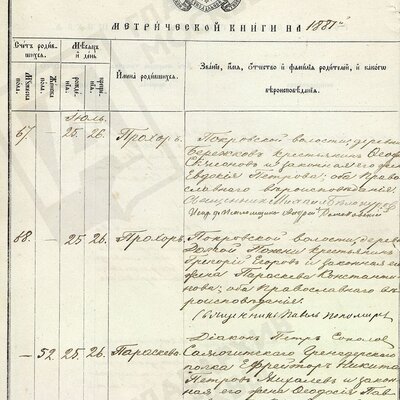 МЕТРИ́ЧЕСКОЙ КНИГИ НА 1881й
Счетъ родив-
шихся.
Мѣсяцъ
и день
Мужеска
пола.
Женска
пола.
рожде-
нія.
креще-
нія.
Имена родившихся.
Званіе, имя, отчество и фамилія родителей, и какого
вѣроисповѣданія.
Іюль.
67. - 25. 26. Прохоръ. Покровской волости, деревни
Бережковъ крестьянинъ
Семеновъ и законная его жена
Евдокія Петрова; оба Право-
славнаго вѣроисповѣданія.
Священникъ Михаилъ
68. - 25 26. Прохоръ. Покровской волости, дерев.
крестьянинъ
Григорій Егоровъ и законная его
жена Параскева Константи-
нова; оба Православнаго вѣ-
роисповѣданія.
Священникъ Павелъ
Діаконъ Петръ Соколов
- 52. 25. 26. Параскева. Гренадерскаго
полка Ефрейторъ Никита
Петровъ Михалевъ и закон-
ная его жена Ѳеодосія Пав-